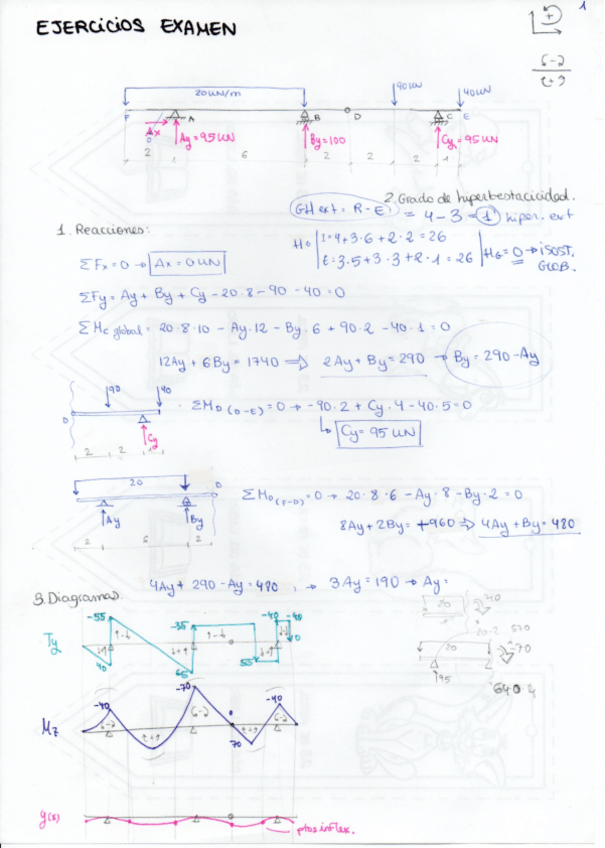 1
EJERCICIOS EXAMEN
+
20 kN/m
90 kN
40 kN
F
A
B
D
C
E
Ax
0
Ay = 95 kN
By = 100
Cy = 95 kN
2
1
6
2
2
2
1
2. Grado de hiperestaticidad.
GH ext = R - E = 4 - 3 = 1 hiper. ext
1. Reacciones:
I = 4 + 3·6 + 2·2 = 26
E = 3·5 + 3·3 + 2·1 = 26
HG = 0 → ISOST. GLOB.
ΣFx = 0 → Ax = 0 kN
ΣFy = Ay + By + Cy - 20·8 - 90 - 40 = 0
ΣMc global = 20·8·10 - Ay·12 - By·6 + 90·2 - 40·1 = 0
12Ay + 6By = 1740 ⇒ 2Ay + By = 290 → By = 290 - Ay
90
40
D
Cy
2
2
1
· ΣMD (D-E) = 0 → -90·2 + Cy·4 - 40·5 = 0
Cy = 95 kN
20
D
Ay
By
2
6
2
ΣMD (F-D) = 0 → 20·8·6 - Ay·8 - By·2 = 0
8Ay + 2By = +960 ⇒ 4Ay + By = 480
4Ay + 290 - Ay = 480, → 3Ay = 190 → Ay =
3. Diagramas.
Ty
-55
40
65
-35
55
-40
-40
Mz
-40
-70
70
-40
y(x)
ptos inflex.
20
40
20·2
20
570
-70
95
640·4